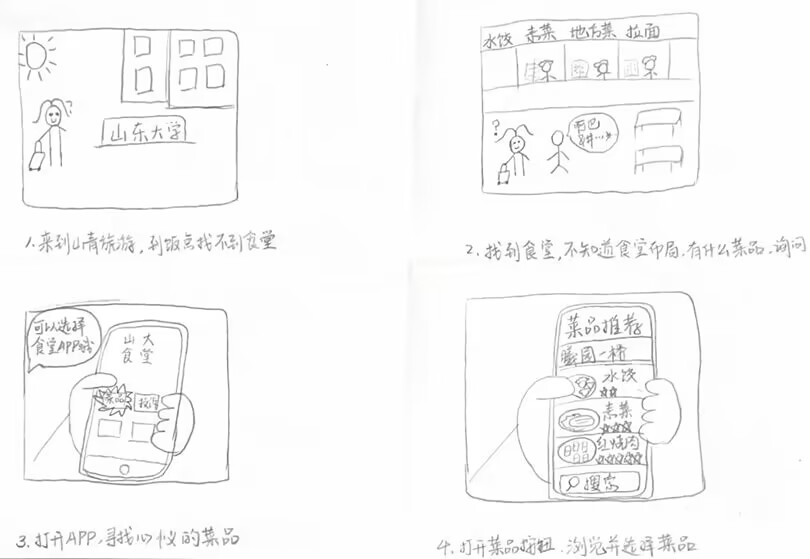 ?
山东大学
1.来到山青旅游,到饭点找不到食堂
水饺 素菜 地方菜 拉面
?
2.找到食堂,不知道食堂布局.有什么菜品.询问
可以选择
食堂APP
山大
食堂
菜品
3.打开APP,寻找心仪的菜品
菜品推荐
园一楼
水饺
素菜
红烧肉
搜索
4.打开菜品按钮.浏览并选择菜品